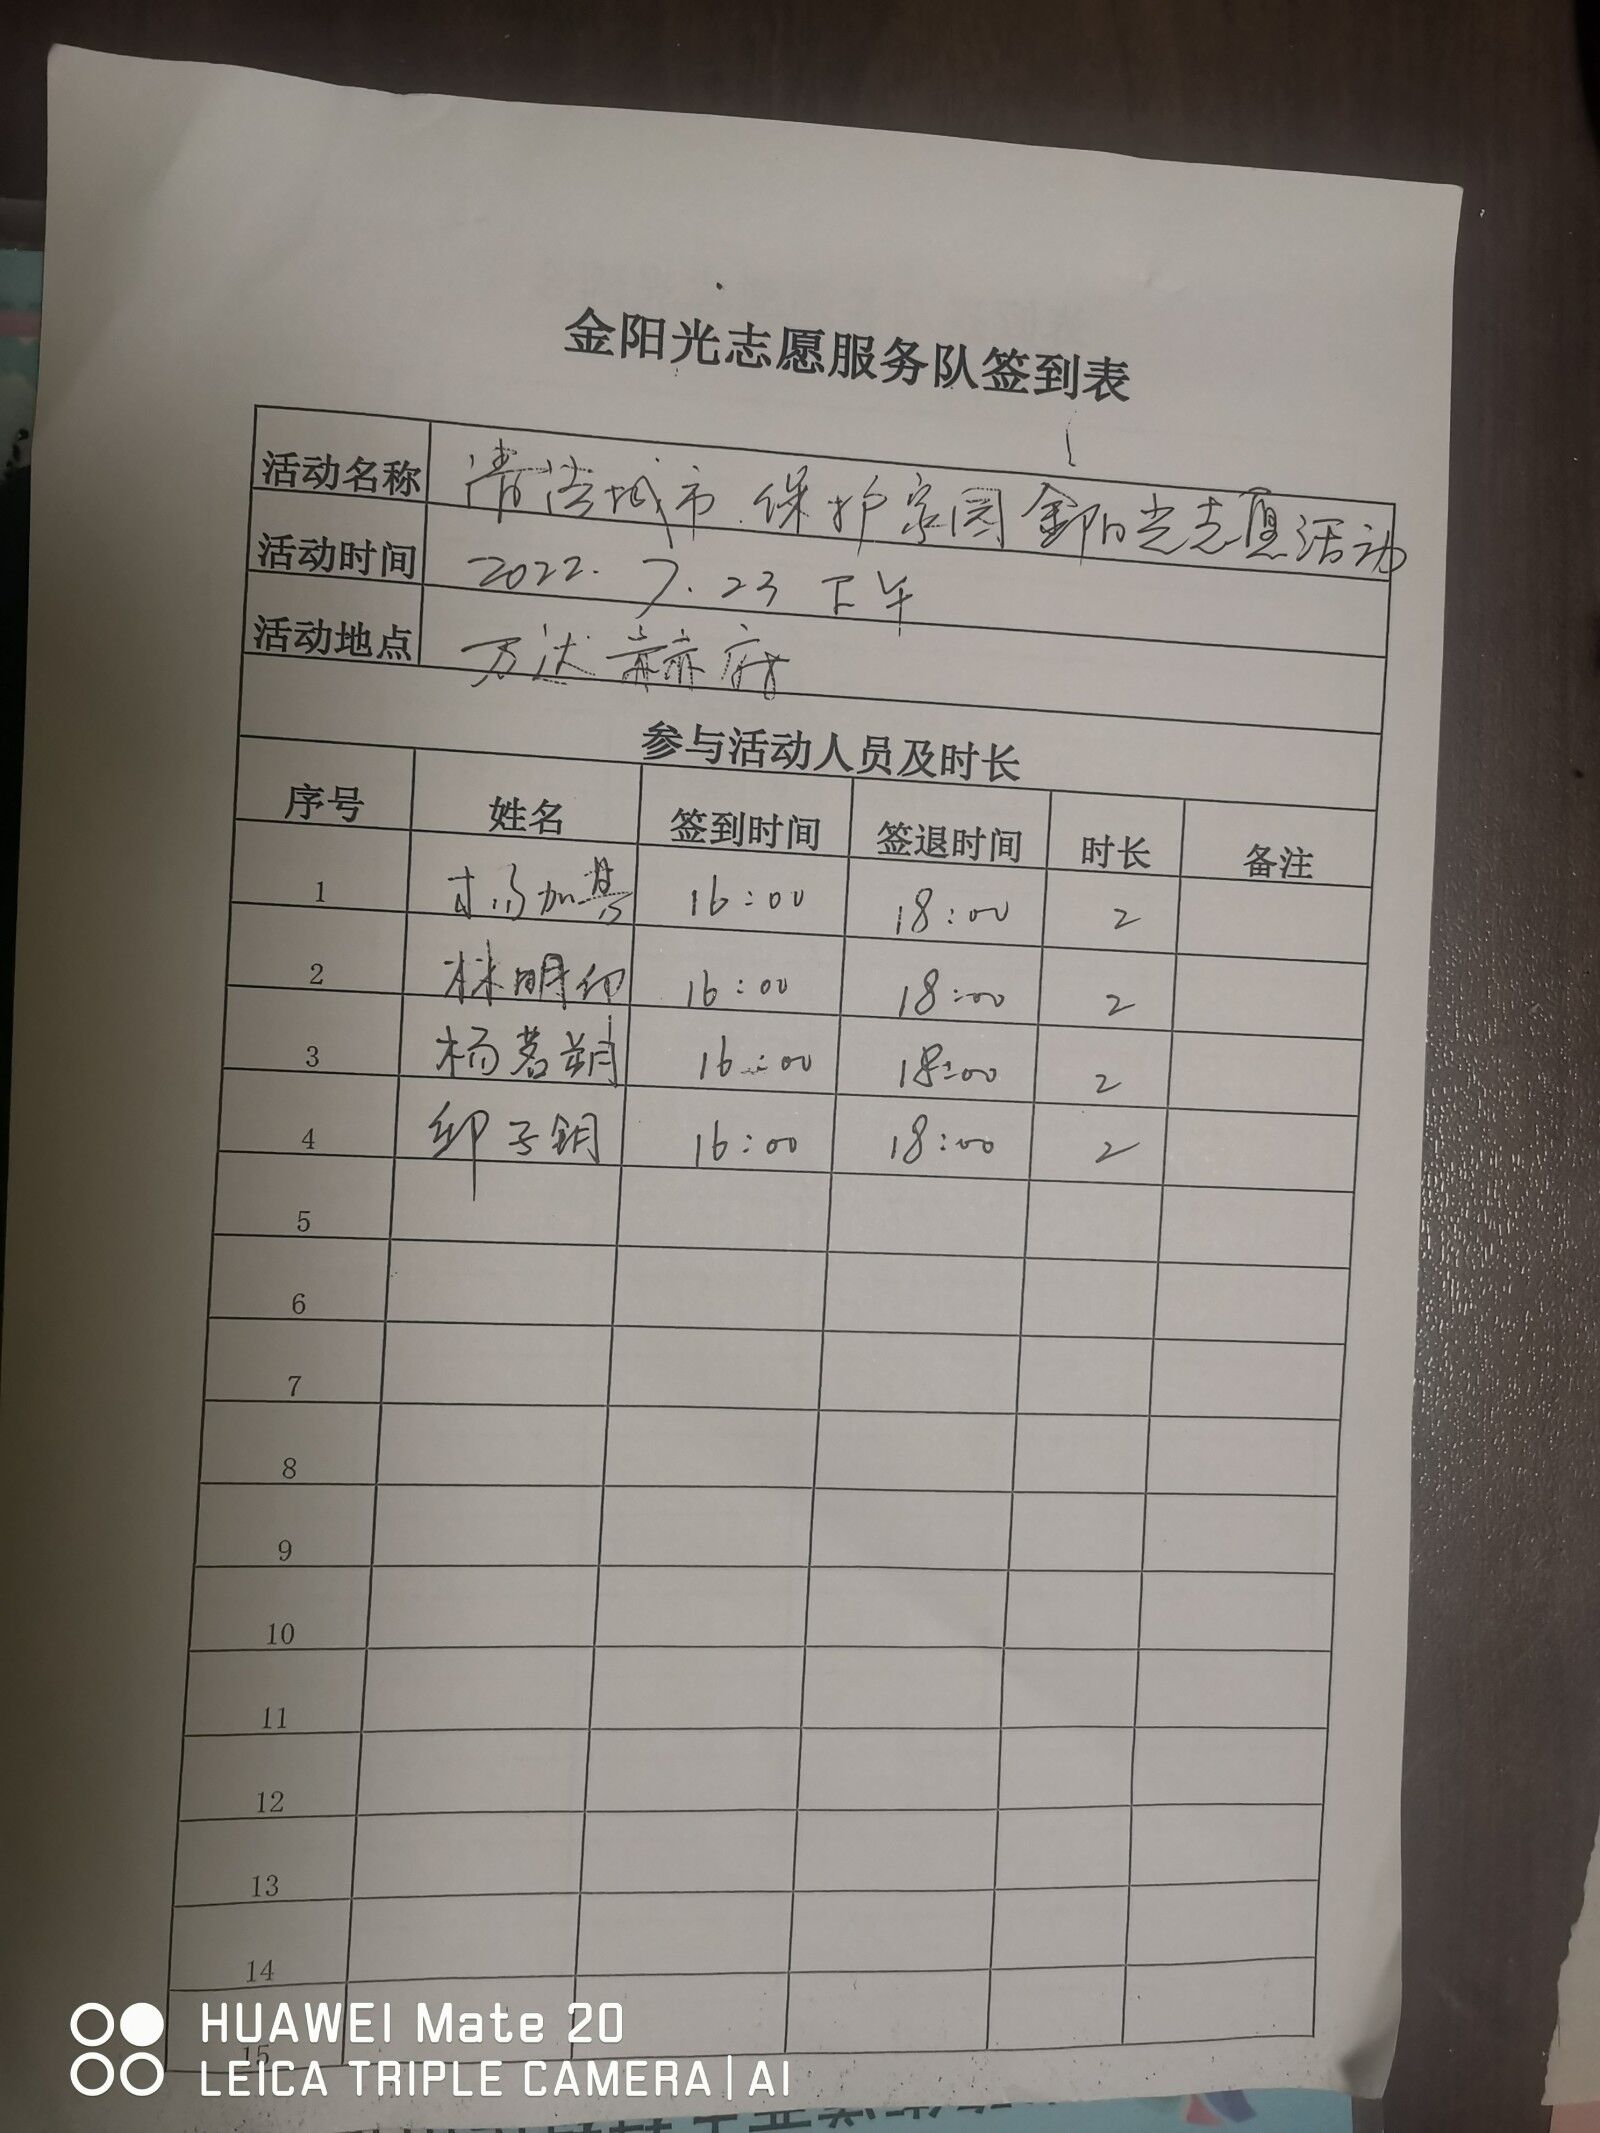 金阳光志愿服务队签到表
活动名称 清洁城市 保护家园 金阳光志愿活动
活动时间 2022.7.23 下午
活动地点 万达赫府
参与活动人员及时长
序号 姓名 签到时间 签退时间 时长 备注
1 16:00 18:00 2
2 林明 16:00 18:00 2
3 杨茗 16:00 18:00 2
4 子钥 16:00 18:00 2
5
6
7
8
9
10
11
12
13
14
15
HUAWEI Mate 20
LEICA TRIPLE CAMERA | AI